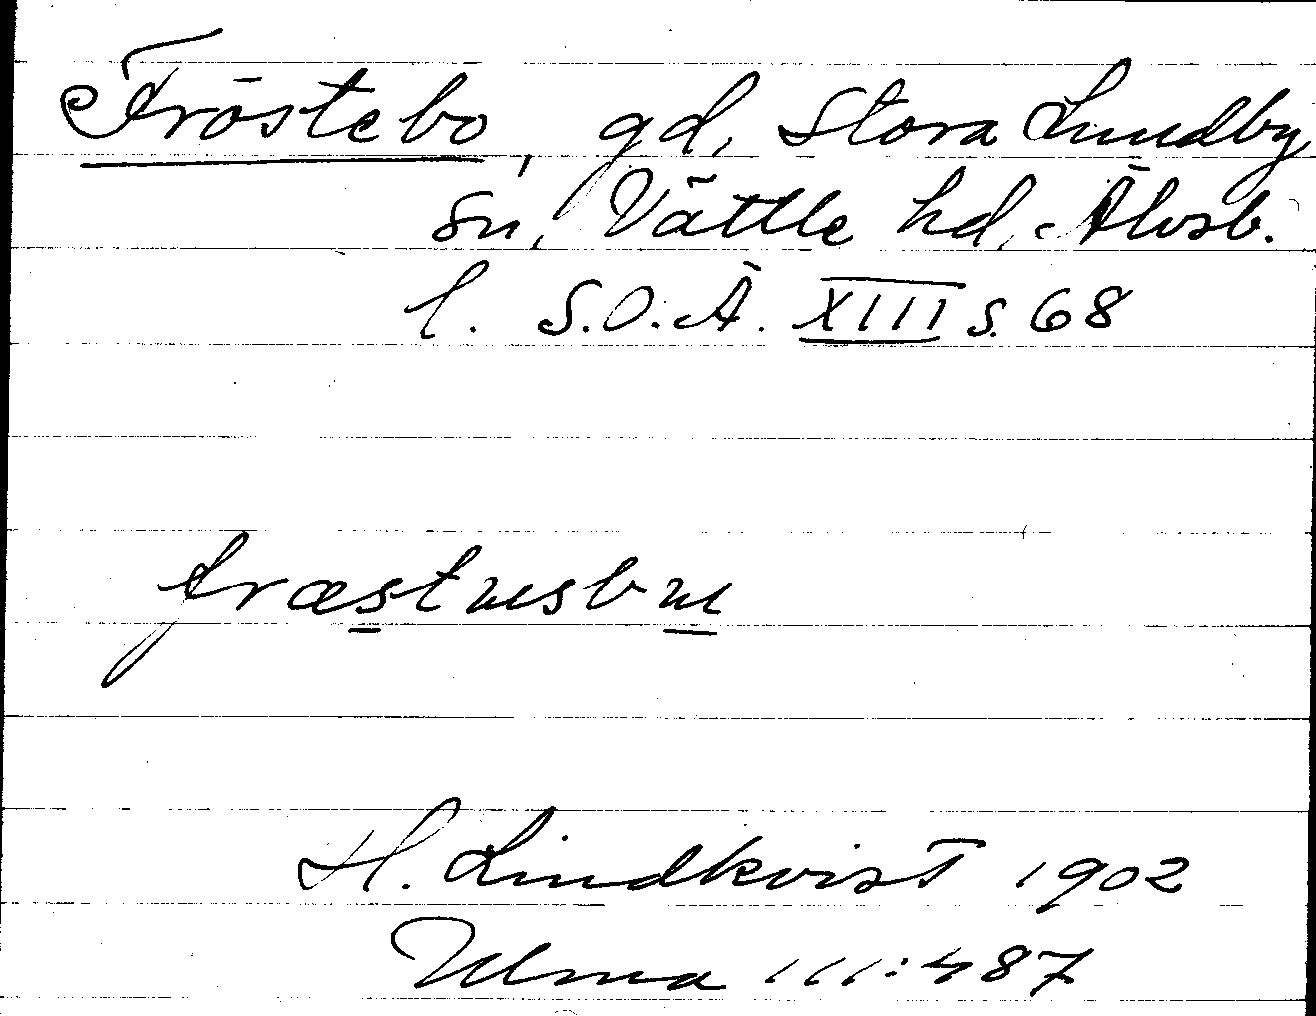 Fröstebo, gd, Stora Lundby
sn, Vättle hd, Älvsb.
l. S.O.Ä. XIII s. 68
fræstusbu
H. Lindkvist 1902
Ulma 111:487